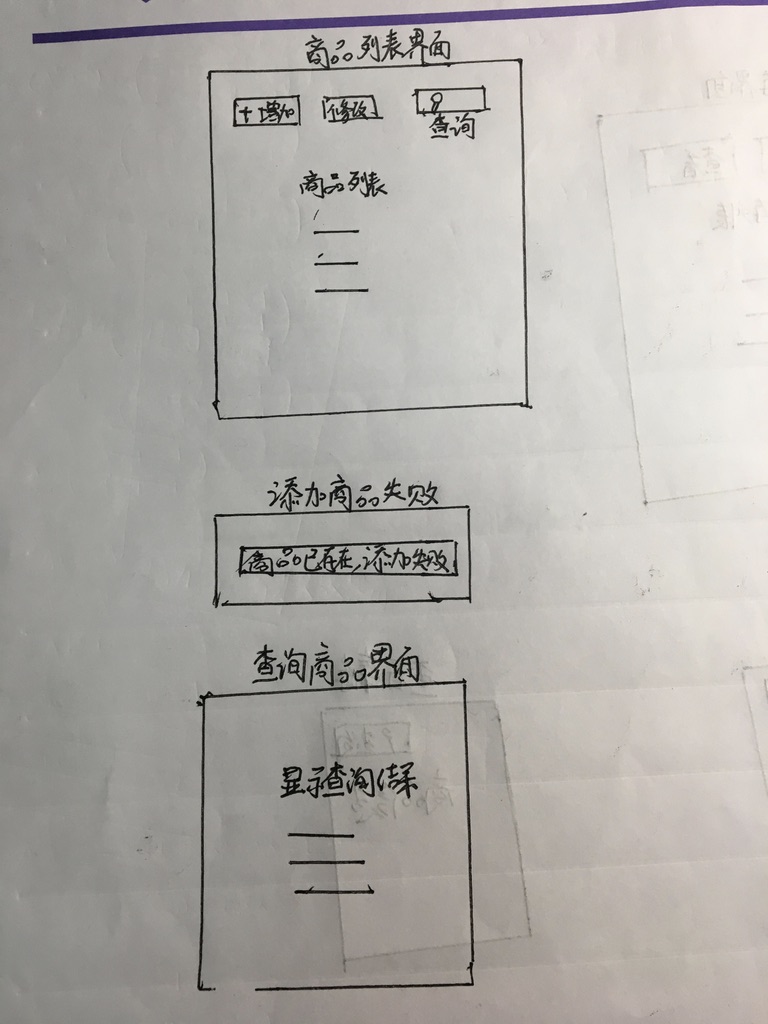 商品列表界面
+增加 修改
查询
商品列表
添加商品失败
商品已存在,添加失败
查询商品界面
显示查询结果